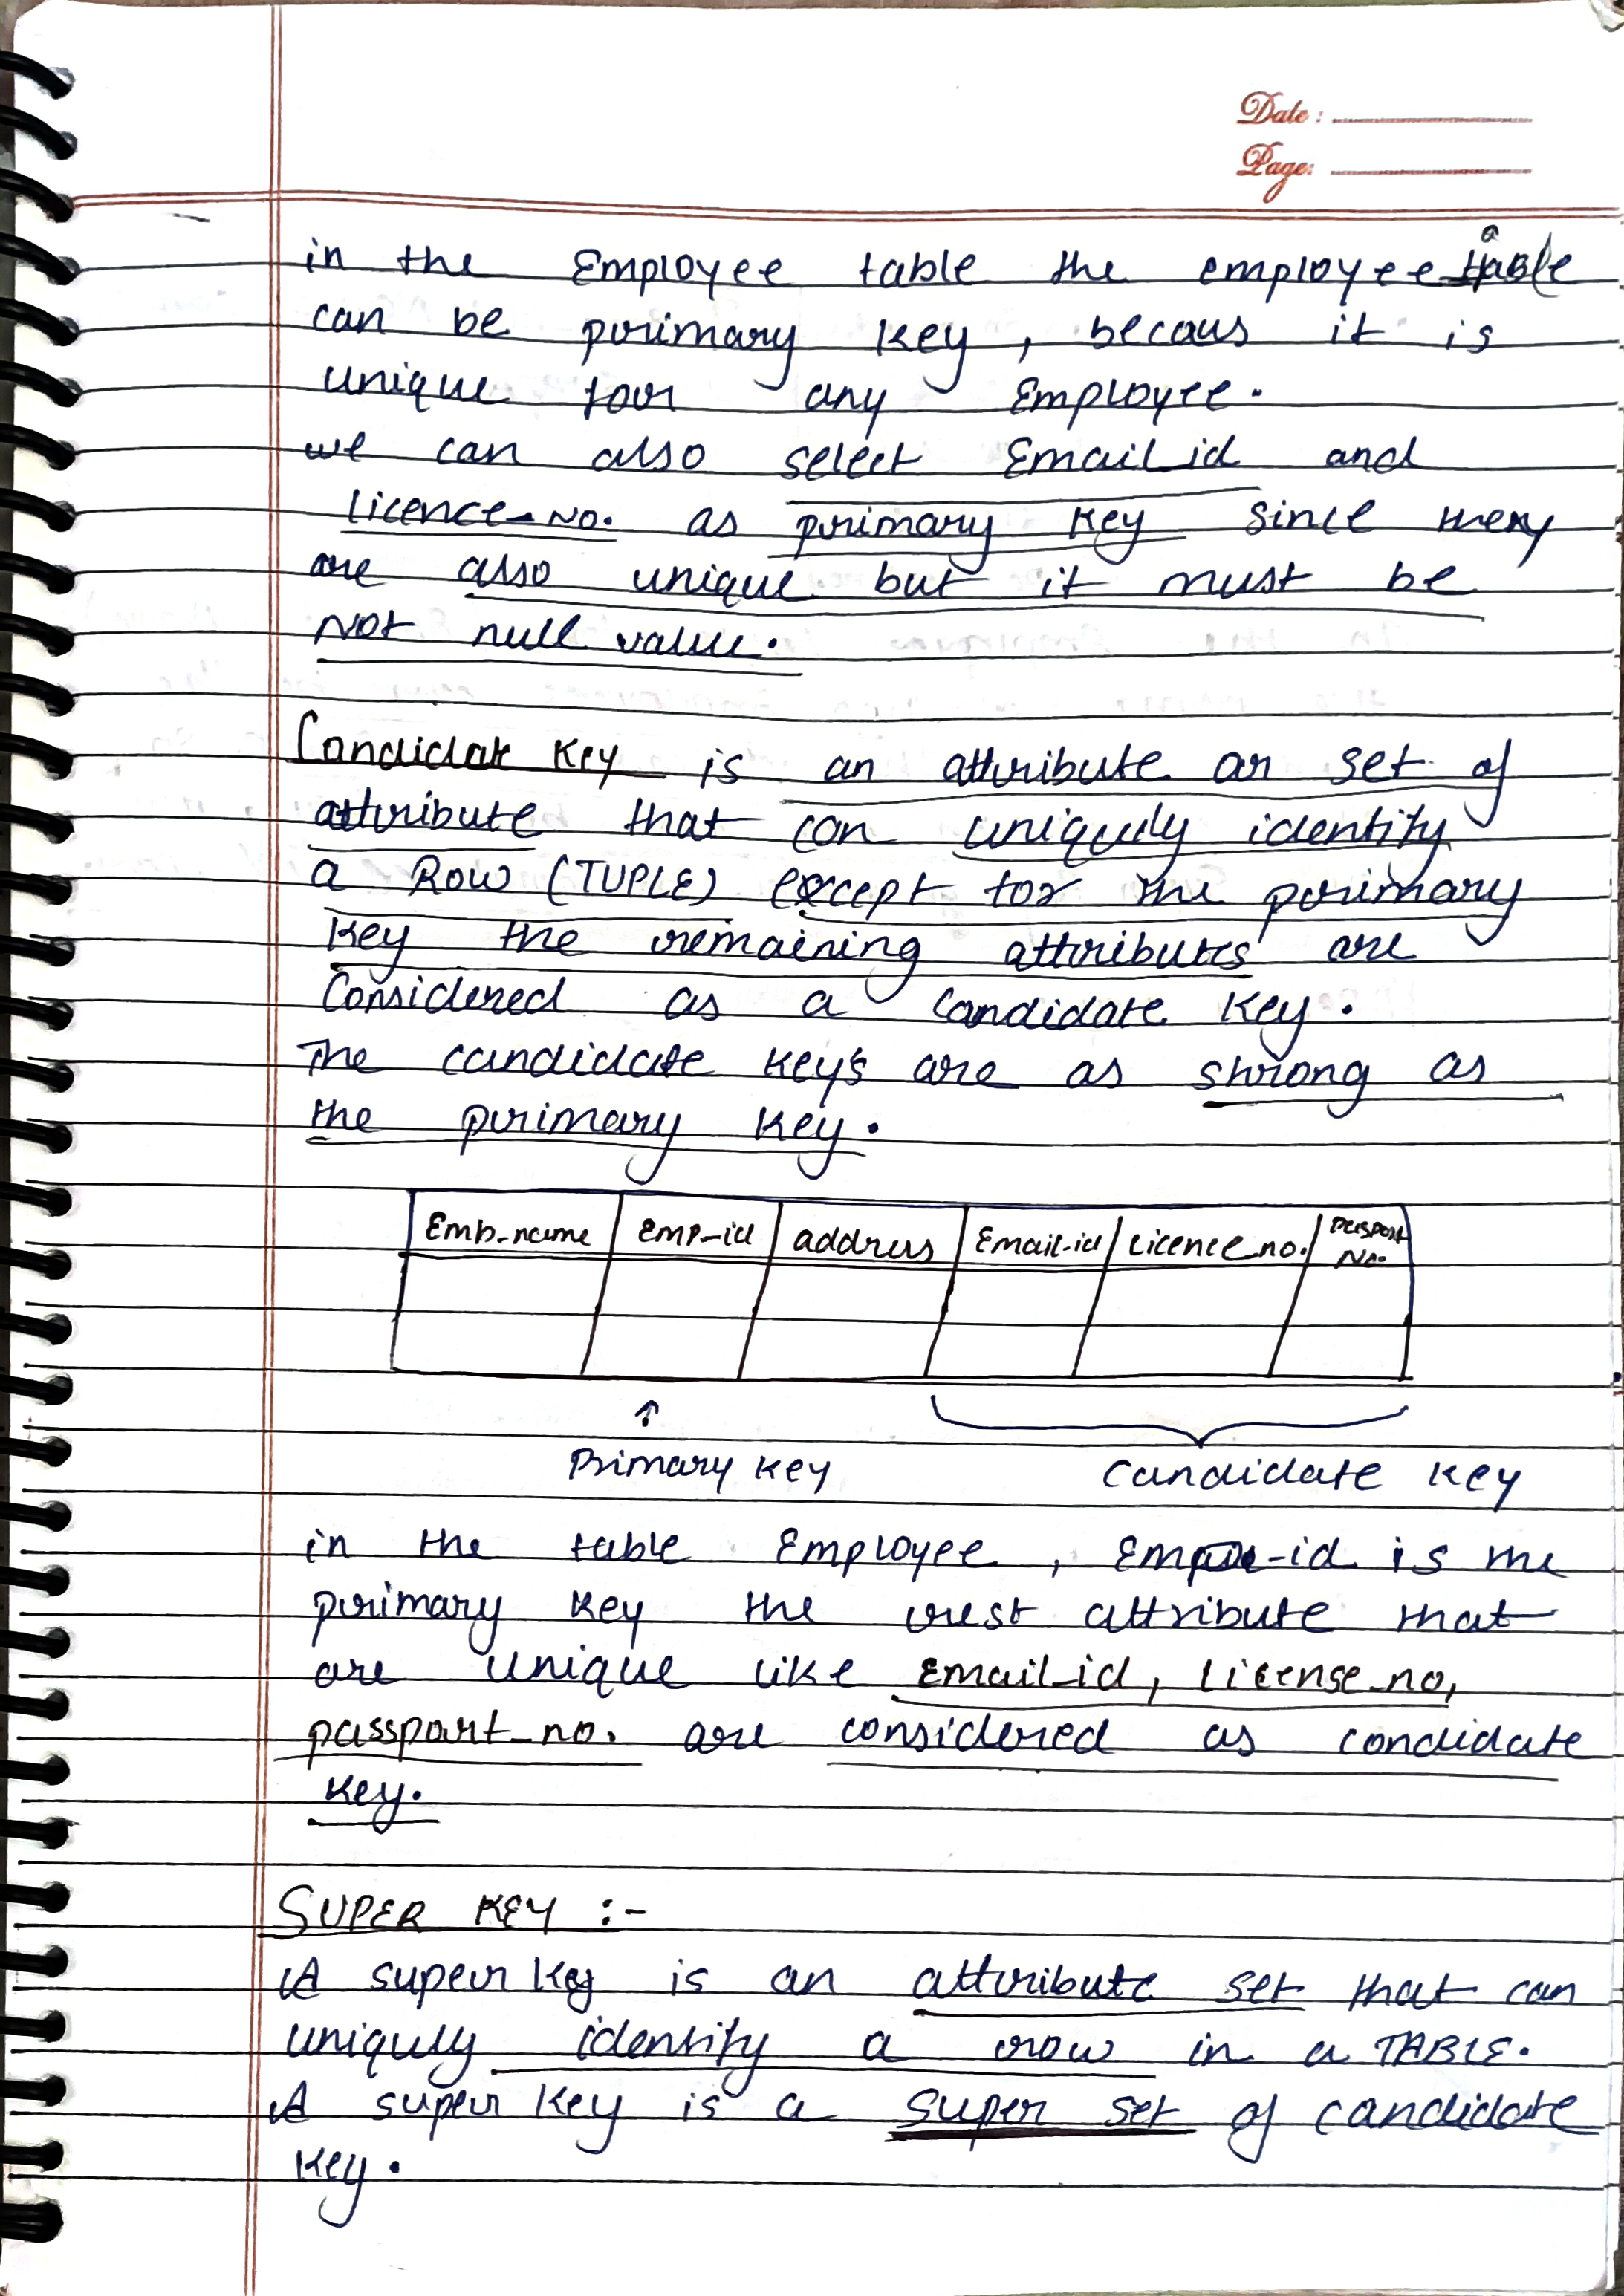 Date:
Page:
in the Employee table the employee table
can be primary key, becaus it is
unique for any Employee.
we can also select Email_id and
licence_No. as primary key since they
are also unique but it must be
Not null value.
Candidate Key is an attribute or set of
attribute that can uniquely identify
a Row (TUPLE) except for the primary
key the remaining attributes are
Considered as a candidate key.
The candidate keys are as strong as
the primary key.
Emb_name Emp-id address Email-id Licence_no. passport No.
↑
Primary key Candidate key
in the table Employee, Emp-id is the
primary key the rest attribute that
are unique like Email_id, License_no,
passport_no. are considered as candidate
key.
SUPER KEY :-
A super key is an attribute set that can
uniquly identify a row in a TABLE.
A super key is a super set of candidate
key.